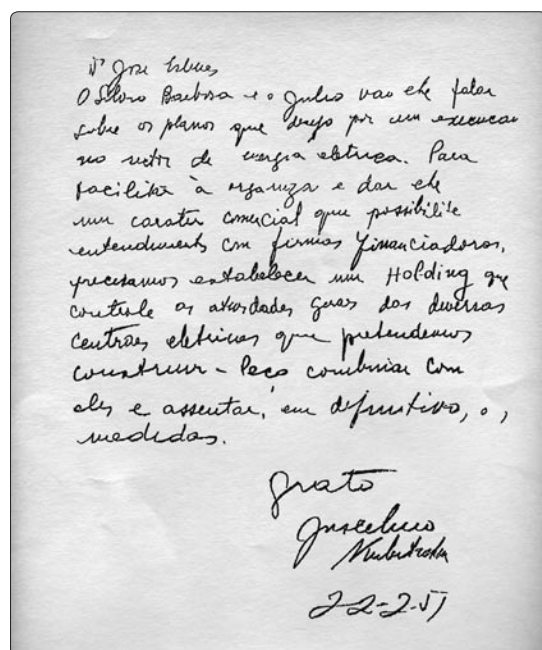 Dr José Esteves
O Silvio Barbosa e o Julio vão lhe falar
sobre os planos que desejo por em execucao
no setor de energia elétrica. Para
facilitar à organiza e dar lhe
um carater comercial que possibilite
entendimento com firmas financiadoras,
precisamos estabelecer um Holding que
controle as atividades gerais das diversas
centraes eletricas que pretendemos
construir - Peço combinar com
eles e assentar, em definitivo, as
medidas.
Grato
Juscelino
Kubitschek
22-2-51